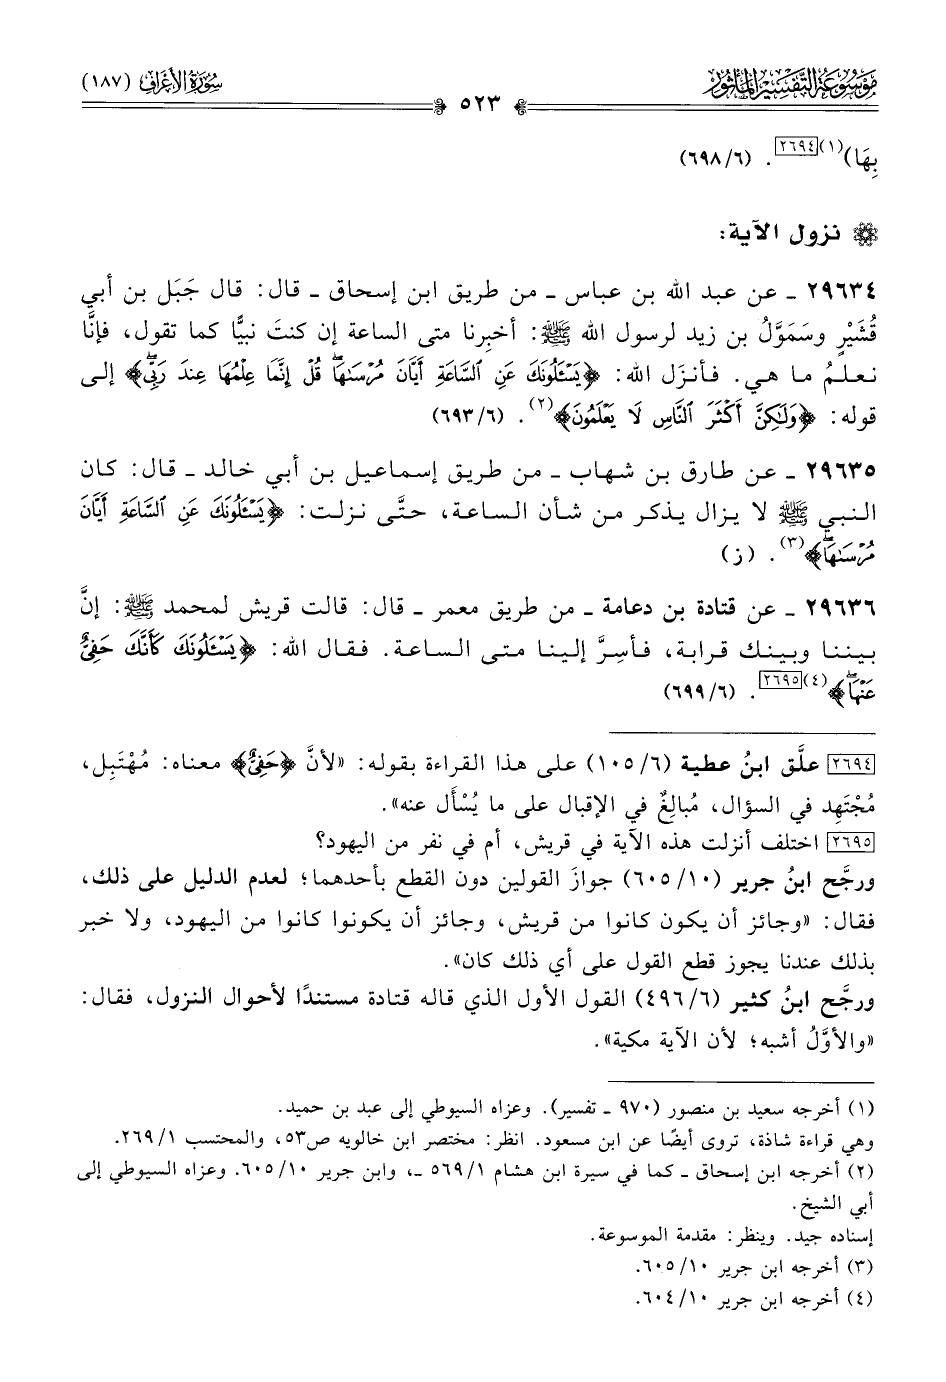 موسوعة التفسير المأثور
سورة الأعراف (١٨٧)
٥٢٣
بِهَا)(١)[٢٦٩٤]. (٦٩٨/٦)
نزول الآية:
٢٩٦٣٤ ـ عن عبد الله بن عباس ـ من طريق ابن إسحاق ـ قال: قال جَبَل بن أبي
قُشَيْرٍ وسَمَوَّلُ بن زيد لرسول الله ﷺ: أخبِرنا متى الساعة إن كنتَ نبيًّا كما تقول، فإنَّا
نعلمُ ما هي. فأنزَل الله: ﴿يَسْـَٔلُونَكَ عَنِ ٱلسَّاعَةِ أَيَّانَ مُرْسَىٰهَاۖ قُلْ إِنَّمَا عِلْمُهَا عِندَ رَبِّىۖ﴾ إلى
قوله: ﴿وَلَـٰكِنَّ أَكْثَرَ ٱلنَّاسِ لَا يَعْلَمُونَ﴾(٢). (٦٩٣/٦)
٢٩٦٣٥ ـ عن طارق بن شهاب ـ من طريق إسماعيل بن أبي خالد ـ قال: كان
النبي ﷺ لا يزال يذكر من شأن الساعة، حتَّى نزلت: ﴿يَسْـَٔلُونَكَ عَنِ ٱلسَّاعَةِ أَيَّانَ
مُرْسَىٰهَاۖ﴾(٣). (ز)
٢٩٦٣٦ ـ عن قتادة بن دعامة ـ من طريق معمر ـ قال: قالت قريش لمحمد ﷺ: إنَّ
بيننا وبينك قرابة، فأسِرَّ إلينا متى الساعة. فقال الله: ﴿يَسْـَٔلُونَكَ كَأَنَّكَ حَفِىٌّ
عَنْهَاۖ﴾(٤)[٢٦٩٥]. (٦٩٩/٦)
[٢٦٩٤] علَّق ابنُ عطية (١٠٥/٦) على هذا القراءة بقوله: «لأنَّ ﴿حَفِىٌّ﴾ معناه: مُهْتَبِل،
مُجْتَهِد في السؤال، مُبالِغٌ في الإقبال على ما يُسْأَل عنه».
[٢٦٩٥] اختلف أنزلت هذه الآية في قريش، أم في نفر من اليهود؟
ورجَّح ابنُ جرير (٦٠٥/١٠) جوازَ القولين دون القطع بأحدهما؛ لعدم الدليل على ذلك،
فقال: «وجائز أن يكون كانوا من قريش، وجائز أن يكونوا كانوا من اليهود، ولا خبر
بذلك عندنا يجوز قطع القول على أي ذلك كان».
ورجَّح ابنُ كثير (٤٩٦/٦) القول الأول الذي قاله قتادة مستندًا لأحوال النزول، فقال:
«والأوَّلُ أشبه؛ لأن الآية مكية».
(١) أخرجه سعيد بن منصور (٩٧٠ ـ تفسير). وعزاه السيوطي إلى عبد بن حميد.
وهي قراءة شاذة، تروى أيضًا عن ابن مسعود. انظر: مختصر ابن خالويه ص٥٣، والمحتسب ٢٦٩/١.
(٢) أخرجه ابن إسحاق ـ كما في سيرة ابن هشام ٥٦٩/١ ـ، وابن جرير ٦٠٥/١٠. وعزاه السيوطي إلى
أبي الشيخ.
إسناده جيد. وينظر: مقدمة الموسوعة.
(٣) أخرجه ابن جرير ٦٠٥/١٠.
(٤) أخرجه ابن جرير ٦٠٤/١٠.